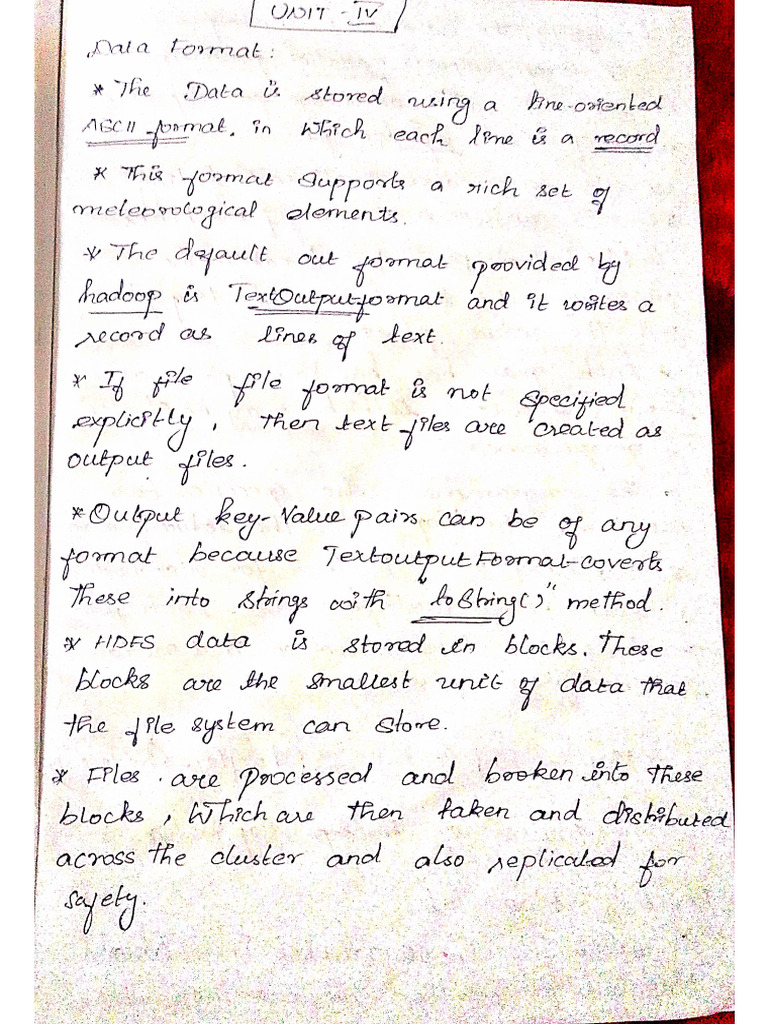 UNIT - IV
Data Format:
* The Data is stored using a line-oriented
ASCII format, in which each line is a record
* This format supports a rich set of
meteorological elements.
* The default out format provided by
hadoop is TextOutputformat and it writes a
record as lines of text.
* If file file format is not specified
explicitly, then text files are created as
output files.
* Output key-value pairs can be of any
format because TextoutputFormat coverts
these into strings with "toString()" method.
* HDFS data is stored in blocks. These
blocks are the smallest unit of data that
the file system can store.
* Files are processed and broken into these
blocks, which are then taken and distributed
across the cluster and also replicated for
safety.